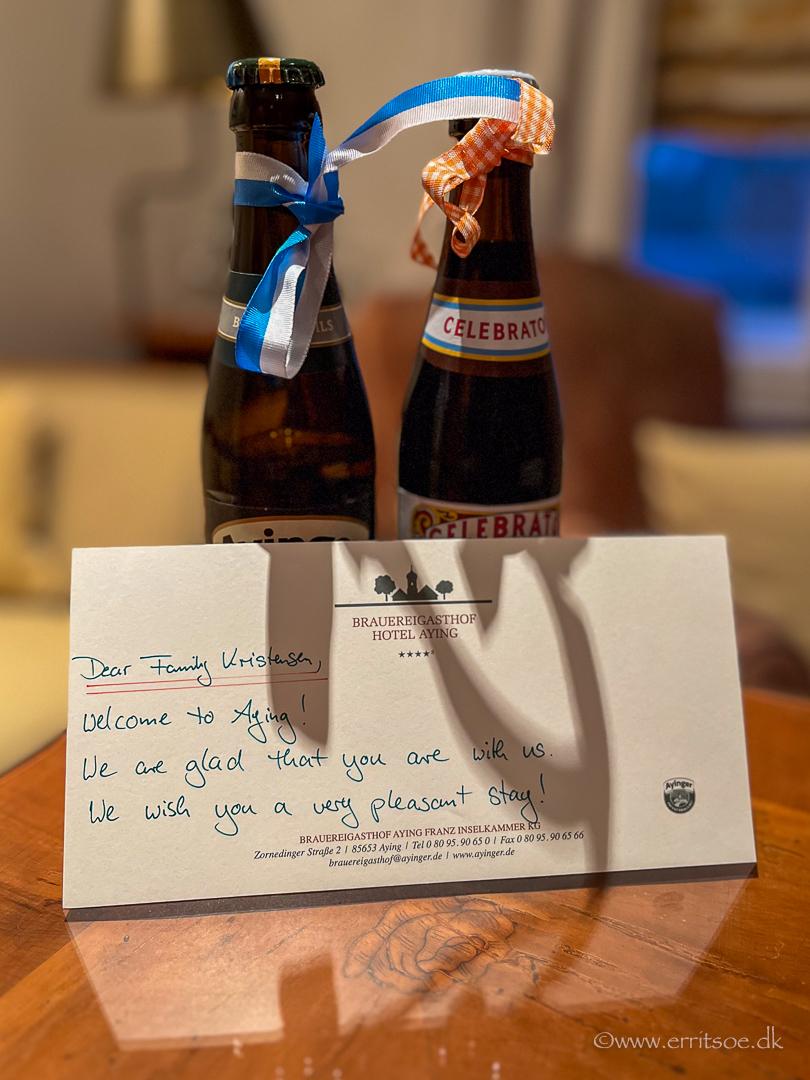 CELEBRATO
Ayinge
CELEBRATO
BRAUEREIGASTHOF
HOTEL AYING
Dear Family Kristensen,
Welcome to Aying!
We are glad that you are with us.
We wish you a very pleasant stay!
Ayinger
BRAUEREIGASTHOF AYING FRANZ INSELKAMMER KG
Zornedinger Straße 2 | 85653 Aying | Tel 0 80 95. 90 65 0 | Fax 0 80 95. 90 65 66
brauereigasthof@ayinger.de | www.ayinger.de
©www.erritsoe.dk